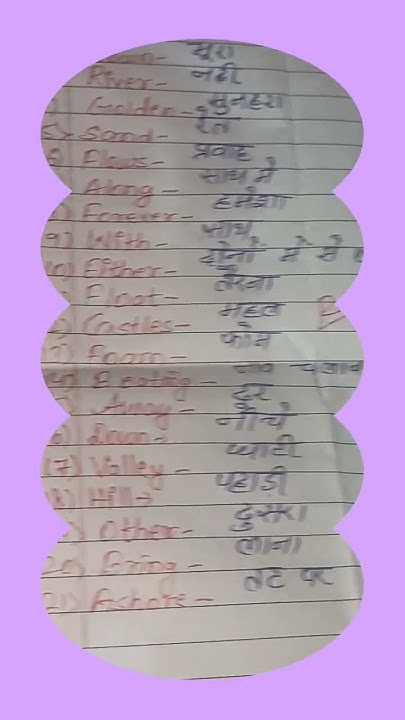 भूरा
River- नदी
Golden- सुनहरा
5) Sand- रेत
6) Flows- प्रवाह
Along- साथ में
Forever- हमेशा
9) With- साथ
10) Either- दोनों में से
Float- तैरना
Castles- महल
Foam- फोम
Boating-
Away- दूर
Down- नीचे
17) Valley- घाटी
18) Hill- पहाड़ी
Other- दुसरा
20) Bring- लाना
21) Ashore- तट पर